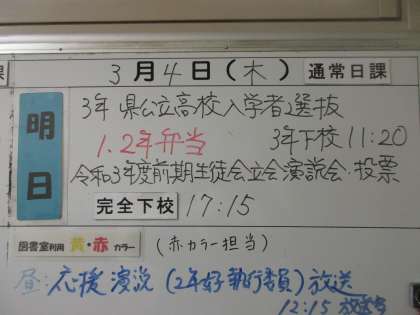 課
3月4日(木) 通常日課
明日
3年 県公立高校入学者選抜
1.2年弁当 3年下校 11:20
令和3年度前期生徒会立会演説会・投票
完全下校 17:15
図書室利用 黄・赤 カラー (赤カラー担当)
昼:応援演説 (2年 執行委員) 放送
12:15 放送室